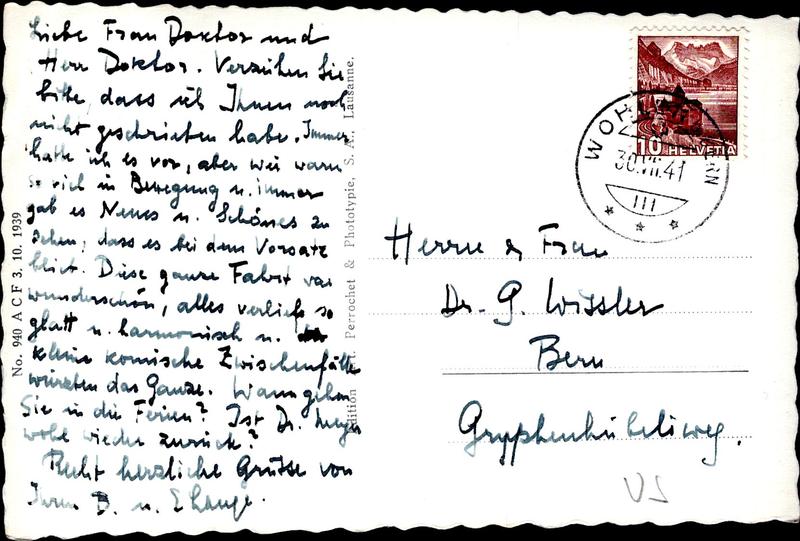 Liebe Frau Doktor und
Herr Doktor. Verzeihen Sie
bitte, dass ich Ihnen noch
nicht geschrieben habe. Immer
hatte ich es vor, aber wir waren
so viel in Bewegung u. immer
gab es Neues u. Schönes zu
sehen, dass es bei dem Vorsatz
blieb. Diese ganze Fahrt war
wunderschön, alles verlief so
glatt u. harmonisch u.
kleine komische Zwischenfälle
würzten das Ganze. Wann gehen
Sie in die Ferien? Ist Dr. Meyer
wohl wieder zurück?
Recht herzliche Grüsse von
Ihren B. u. E Lange.
No. 940 A C F 3. 10. 1939
Edition Art. Perrochet & Phototypie, S. A., Lausanne.
10 HELVETIA
WOH BERN
30.VII.41
III
Herrn & Frau
Dr. G. Wissler
Bern
Gryphenhübeliweg.